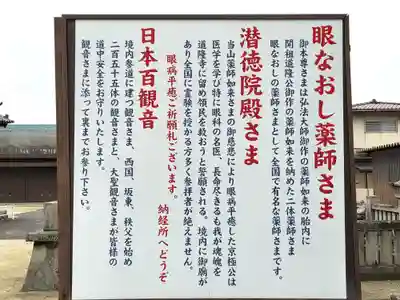 眼なおし薬師さま
御本尊さまは弘法大師御作の薬師如来の胎内に
開祖道隆公御作の薬師如来を納めた二体薬師さま
眼なおしの薬師さまとして全国で有名な薬師さまです。
潜徳院殿さま
当山薬師如来さまの御慈悲により眼病平癒した京極公は
医学を学び特に眼科の名医、長命尽きるも我が魂魄を
道隆寺に留め領民を救おうと誓願される。境内に御廟が
あり全国に霊験を授かる方多く参拝者が絶えません。
眼病平癒ご祈願札ございます。
納経所へどうぞ
日本百観音
境内参道に建つ観音さま、西国、坂東、秩父を始め
二百五十五体の観音さまと、大聖観音さまが皆様の
道中安全をお守りいたします。
観音さまに添って裏までお参り下さい。